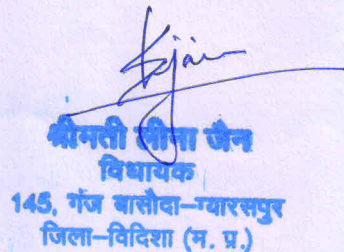 श्रीमती लीना जैन
विधायक
145, गंज बासौदा-ग्यारसपुर
जिला-विदिशा (म. प्र.)